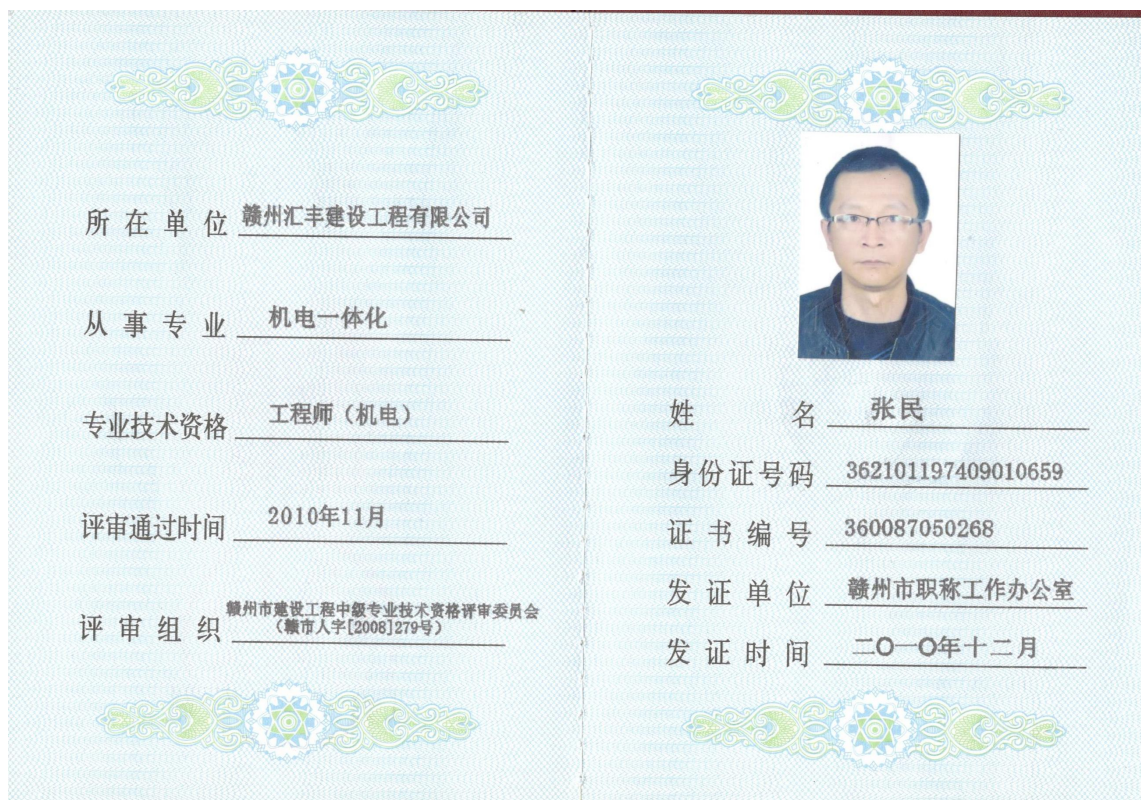 所在单位 赣州汇丰建设工程有限公司
从事专业 机电一体化
专业技术资格 工程师（机电）
评审通过时间 2010年11月
评审组织 赣州市建设工程中级专业技术资格评审委员会
（赣市人字[2008]279号）
姓名 张民
身份证号码 362101197409010659
证书编号 360087050268
发证单位 赣州市职称工作办公室
发证时间 二〇一〇年十二月